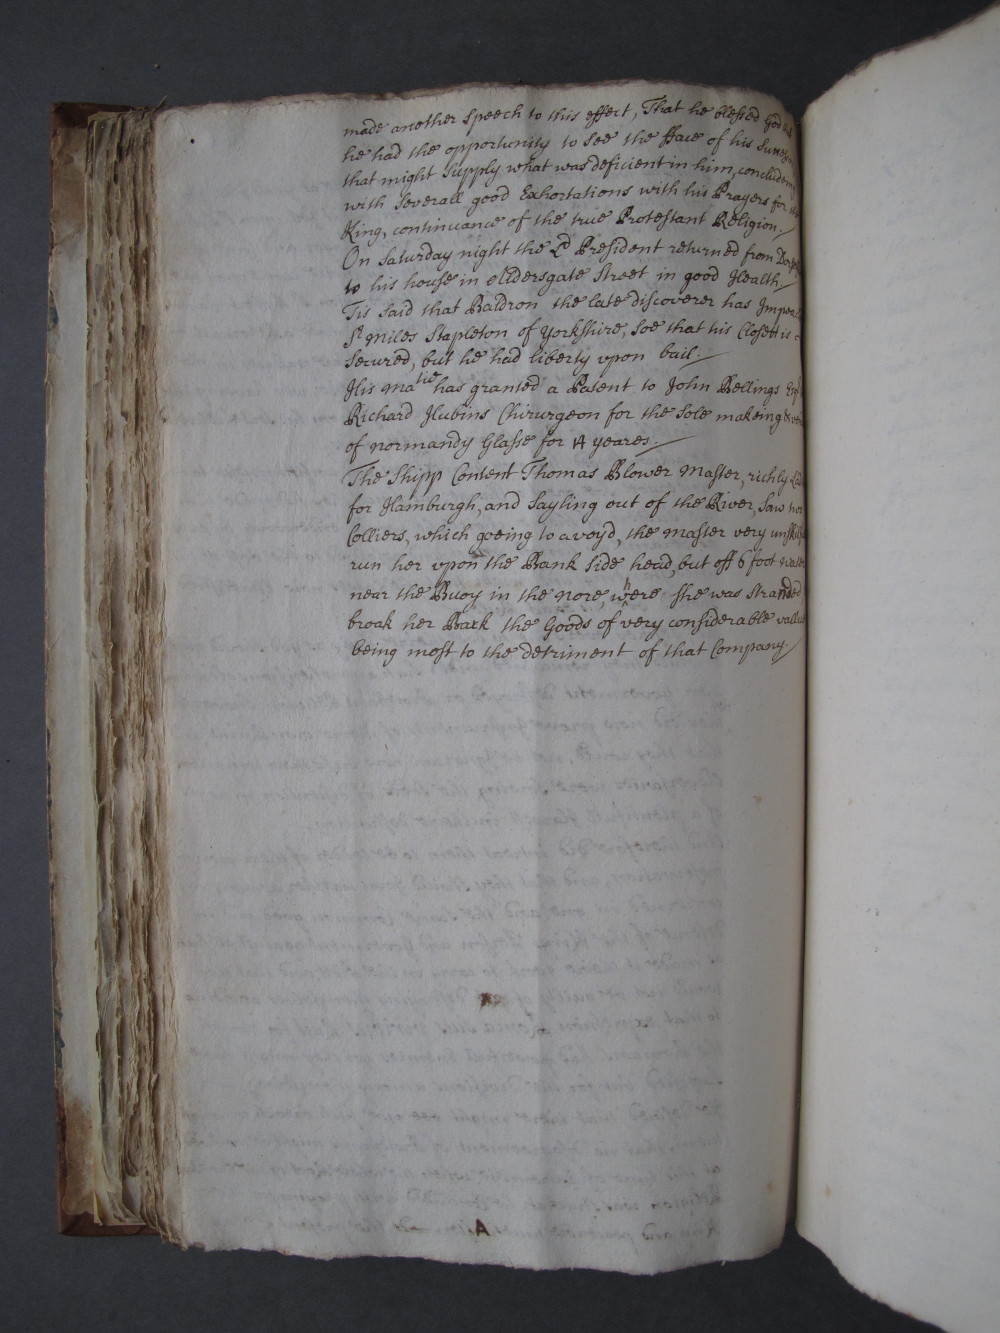 made another speech to this effect, That he blessed God
he had the opportunity to see the fface of his
that might supply what was deficient in him,
with severall good Exhortations with his Prayers for
King, continuance of the true Protestant Religion.
On Saturday night the Ld President returned from
to his house in Aldersgate Street in good Health,
Tis said that Baldron the late discoverer has
Sr Miles Stapleton of Yorkshire, soe that his Closett is
secured, but he had liberty upon bail.
His Matie has granted a Patent to John Bellings
Richard Hubins Chirurgeon for the sole makeing
of normandy Glasse for 14 yeares.
The Shipp Content Thomas Blower Master, richly
for Hamburgh, and Sayling out of the River, saw two
Colliers, which goeing to avoyd, the master very
run her upon the Bank side head, but off 6 foot water
near the Buoy in the nore, where she was stranded
broak her Back the Goods of very considerable
being most to the detriment of that Company.
A